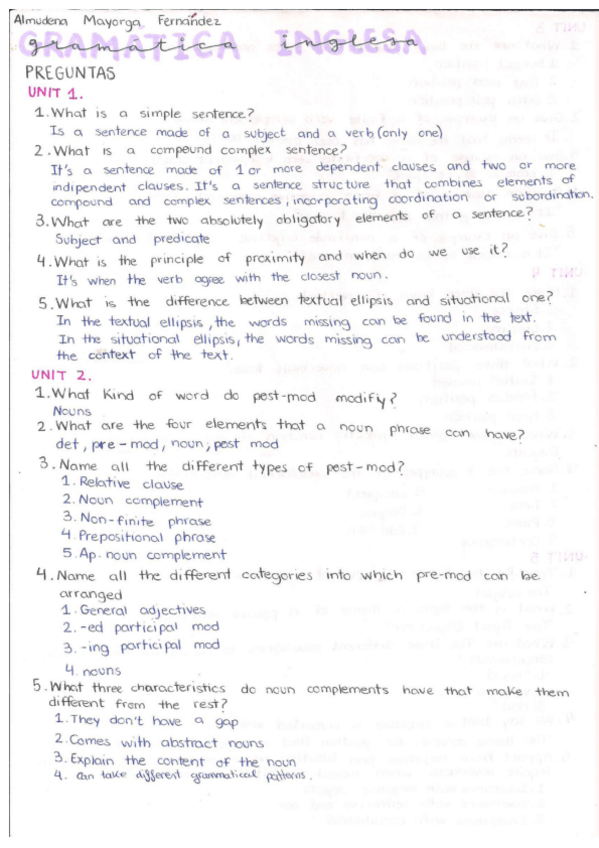 Almudena Mayorga Fernández
GRAMÁTICA INGLESA
gramática inglesa
PREGUNTAS
UNIT 1.
1. What is a simple sentence?
Is a sentence made of a subject and a verb (only one)
2. What is a compound complex sentence?
It's a sentence made of 1 or more dependent clauses and two or more
indipendent clauses. It's a sentence structure that combines elements of
compound and complex sentences, incorporating coordination or subordination.
3. What are the two absolutely obligatory elements of a sentence?
Subject and predicate
4. What is the principle of proximity and when do we use it?
It's when the verb agree with the closest noun.
5. What is the difference between textual ellipsis and situational one?
In the textual ellipsis, the words missing can be found in the text.
In the situational ellipsis, the words missing can be understood from
the context of the text.
UNIT 2.
1. What kind of word do post-mod modify?
Nouns
2. What are the four elements that a noun phrase can have?
det, pre-mod, noun, post mod
3. Name all the different types of post-mod?
1. Relative clause
2. Noun complement
3. Non-finite phrase
4. Prepositional phrase
5. Ap. noun complement
4. Name all the different categories into which pre-mod can be
arranged
1. General adjectives
2. -ed participal mod
3. -ing participal mod
4. nouns
5. What three characteristics do noun complements have that make them
different from the rest?
1. They don't have a gap
2. Comes with abstract nouns
3. Explain the content of the noun
4. Can take different grammatical patterns.